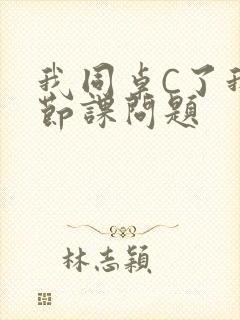 我同卓C了我
节课问题
林志颖